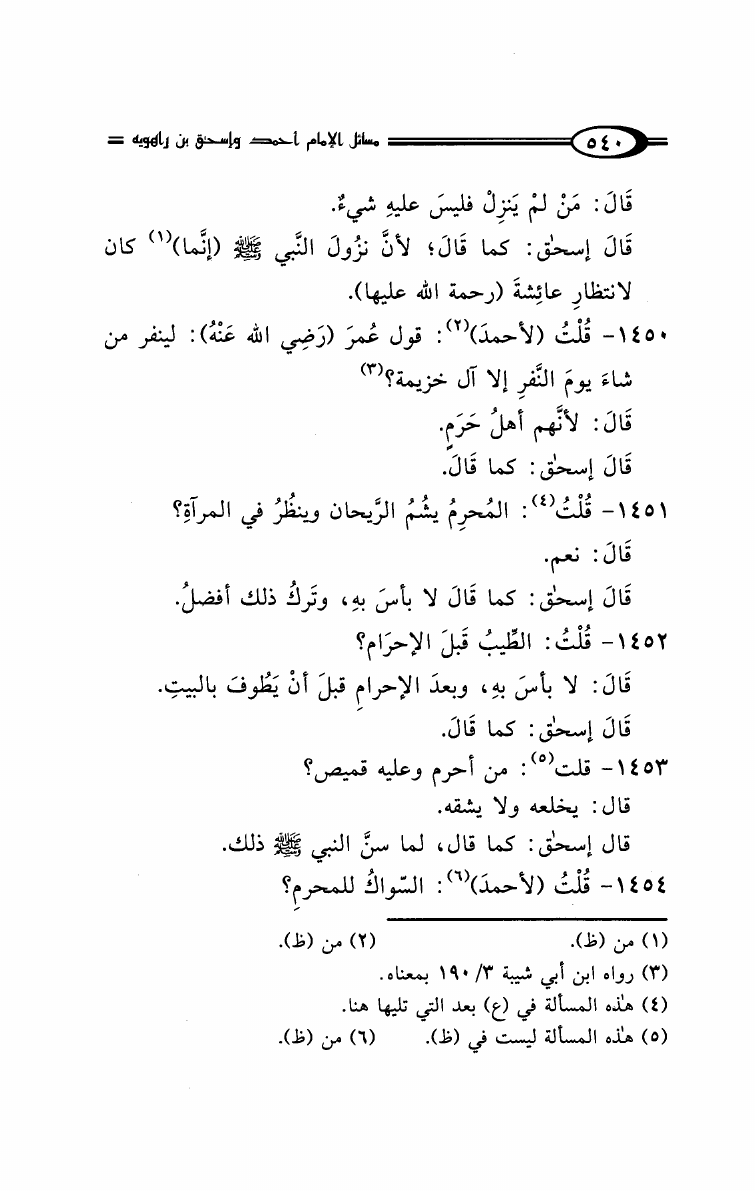 ٥٤٠ مسائل الإمام أحمد وإسحق بن راهويه
قَالَ: مَنْ لمْ يَنزِلْ فليسَ عليهِ شيءٌ.
قَالَ إسحٰق: كما قَالَ؛ لأنَّ نزُولَ النَّبي ﷺ (إنَّما)(١) كان
لانتظارِ عائِشةَ (رحمة الله عليها).
١٤٥٠- قُلْتُ (لأحمدَ)(٢): قول عُمرَ (رَضِي الله عَنْهُ): لينفر من
شاءَ يومَ النَّفرِ إلا آل خزيمة؟(٣)
قَالَ: لأنَّهم أهلُ حَرَمٍ.
قَالَ إسحٰق: كما قَالَ.
١٤٥١- قُلْتُ(٤): المُحرِمُ يشُمُ الرَّيحان وينظُرُ في المرآةِ؟
قَالَ: نعم.
قَالَ إسحٰق: كما قَالَ لا بأسَ بهِ، وتَركُ ذلك أفضلُ.
١٤٥٢- قُلْتُ: الطِّيبُ قَبلَ الإحرَامِ؟
قَالَ: لا بأسَ بهِ، وبعدَ الإحرامِ قبلَ أنْ يَطُوفَ بالبيتِ.
قَالَ إسحٰق: كما قَالَ.
١٤٥٣- قلت(٥): من أحرم وعليه قميص؟
قال: يخلعه ولا يشقه.
قال إسحٰق: كما قال، لما سنَّ النبي ﷺ ذلك.
١٤٥٤- قُلْتُ (لأحمدَ)(٦): السّواكُ للمحرمِ؟
(١) من (ظ). (٢) من (ظ).
(٣) رواه ابن أبي شيبة ٣/ ١٩٠ بمعناه.
(٤) هٰذه المسألة في (ع) بعد التي تليها هنا.
(٥) هٰذه المسألة ليست في (ظ). (٦) من (ظ).